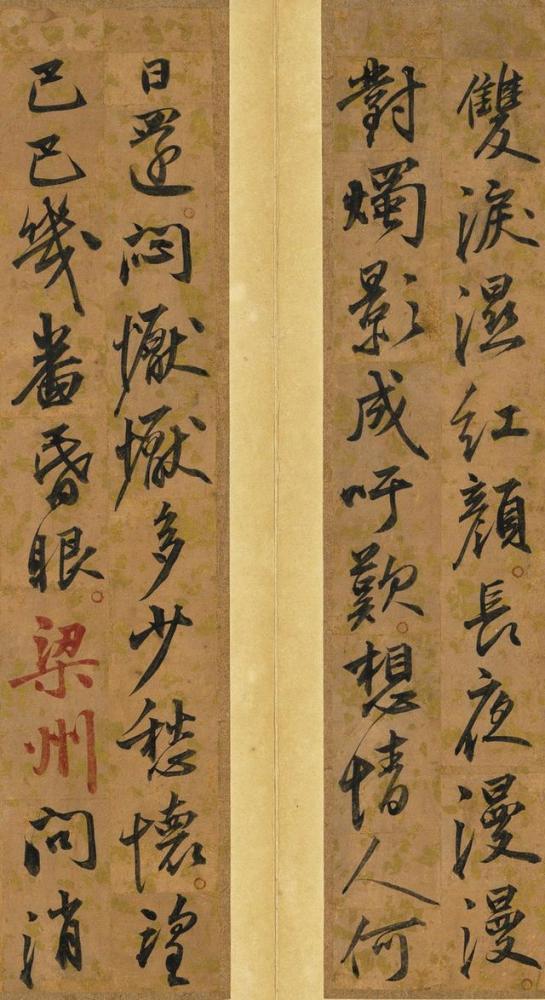 雙淚濕紅顏長夜漫漫
對燭影成吁歎想情人何
日還悶懨懨多少愁懷望
巴巴幾番昏眼梁州問消